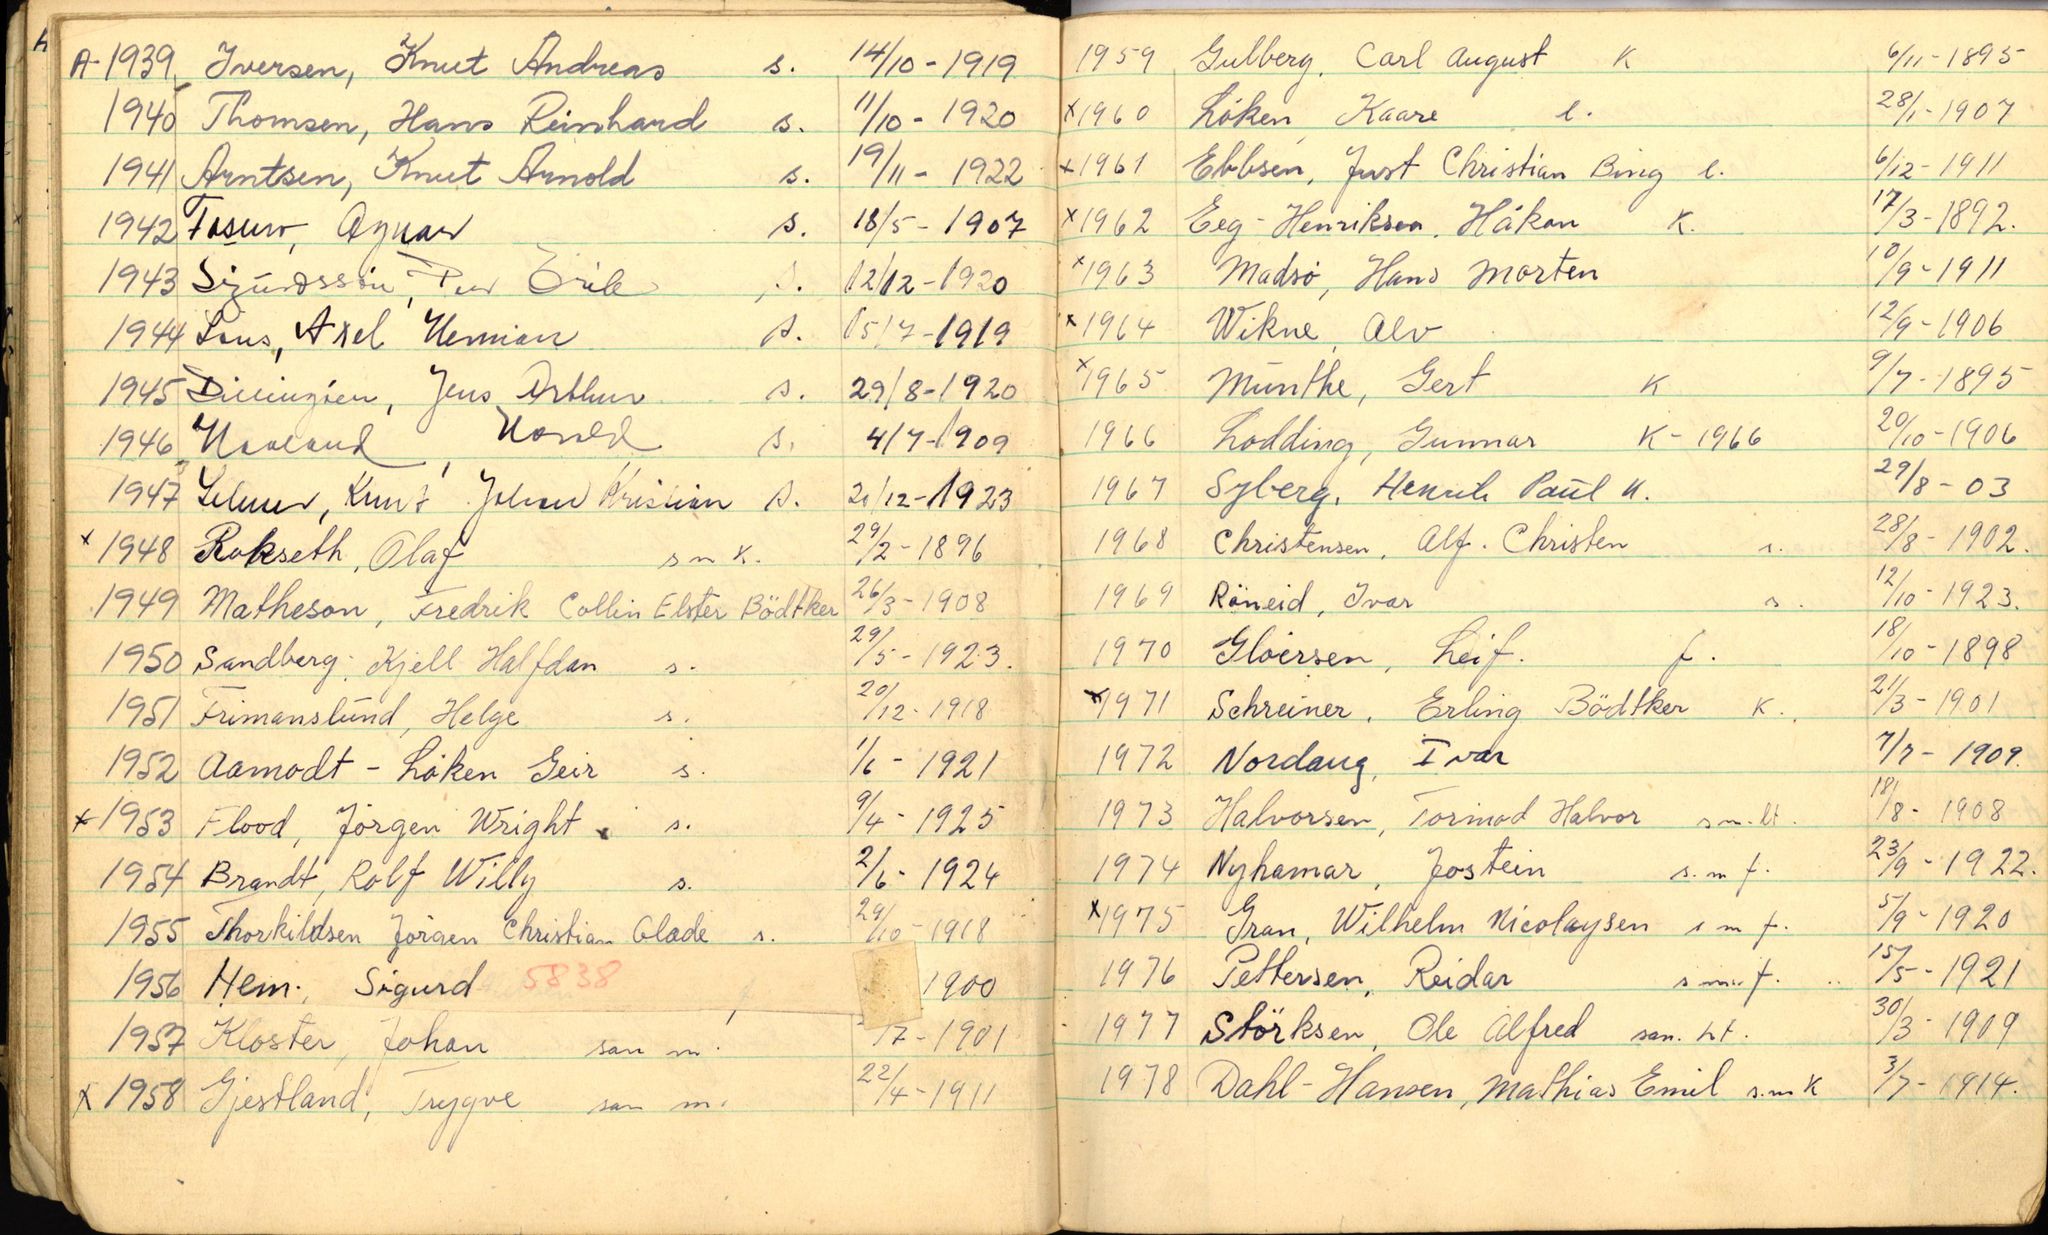 A-1939 Iversen, Knut Andreas s. 14/10-1919
1940 Thomsen, Hans Reinhard s. 11/10-1920
1941 Arntsen, Knut Arnold s. 19/11-1922
1942 s. 18/5-1907
1943 Erik s. 12/12-1920
1944 Axel Herman s. 15/7-1919
1945 Jens Arthur s. 29/8-1920
1946 s. 4/7-1909
1947 Johan Kristian s. 12-1923
x 1948 Rokseth, Olaf s m K. 29/2-1896
1949 Matheson, Fredrik Collin Elster Bödtker 26/3-1908
1950 Sandberg, Kjell Halfdan s. 29/5-1923.
1951 Frimanslund, Helge s. 20/12-1918
1952 Aamodt-Löken Geir s. 1/6-1921
x 1953 Flood, Jörgen Wright s. 9/4-1925
1954 Brandt, Rolf Willy s. 2/6-1924
1955 Thorkildsen Jörgen Christian Olade s. 29/10-1918
1956 Hem, Sigurd 5838 1900
1957 Kloster, Johan san m. /7-1901
x 1958 Gjestland, Trygve san m. 22/4-1911
1959 Gulberg, Carl August K 6/11-1895
x 1960 Löken, Kaare l. 28/1-1907
x 1961 Ebbsen, Just Christian Bing l. 6/12-1911
x 1962 Eeg-Henriksen, Håkon K. 17/3-1892.
x 1963 Madsö, Hans Morten 10/9-1911
x 1964 Wikne, Alv 12/9-1906
x 1965 Munthe, Gert K 9/7-1895
1966 Lodding, Gunnar K-1966 20/10-1906
1967 Syberg, Henrik Paul K. 29/8-03
1968 Christensen, Alf. Christen s. 28/8-1902.
1969 Röneid, Ivar s. 12/10-1923.
1970 Glöersen, Leif. f. 18/10-1898
x 1971 Schreiner, Erling Bödtker K. 21/3-1901
1972 Nordaug, Ivar 7/7-1909.
1973 Halvorsen, Tormod Halvor s m. lt. 18/8-1908
1974 Nyhamar, Jostein s. m f. 23/9-1922.
x 1975 Gran, Wilhelm Nicolaysen s m f. 5/9-1920
1976 Pettersen, Reidar s m. f. 15/5-1921
1977 Störksen, Ole Alfred san. lt. 30/3-1909
1978 Dahl-Hansen, Mathias Emil s.m K 3/7-1914.